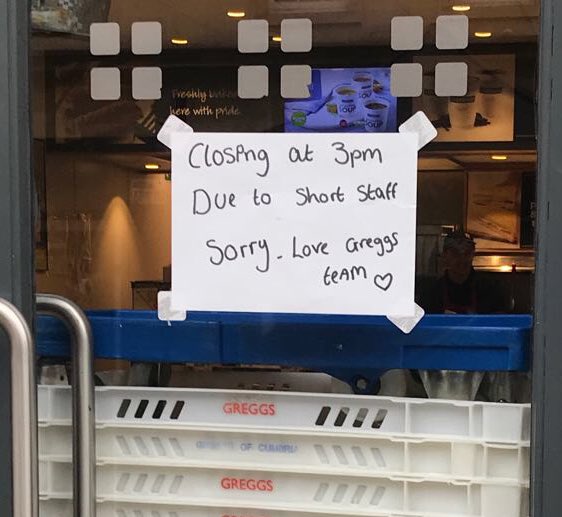 Freshly baked
here with pride.
SOUP
ClosPng at 3pm
Due to Short Staff
Sorry. Love Greggs
teAM ♡
GREGGS
OF CUMBRIA
GREGGS
GREGGS